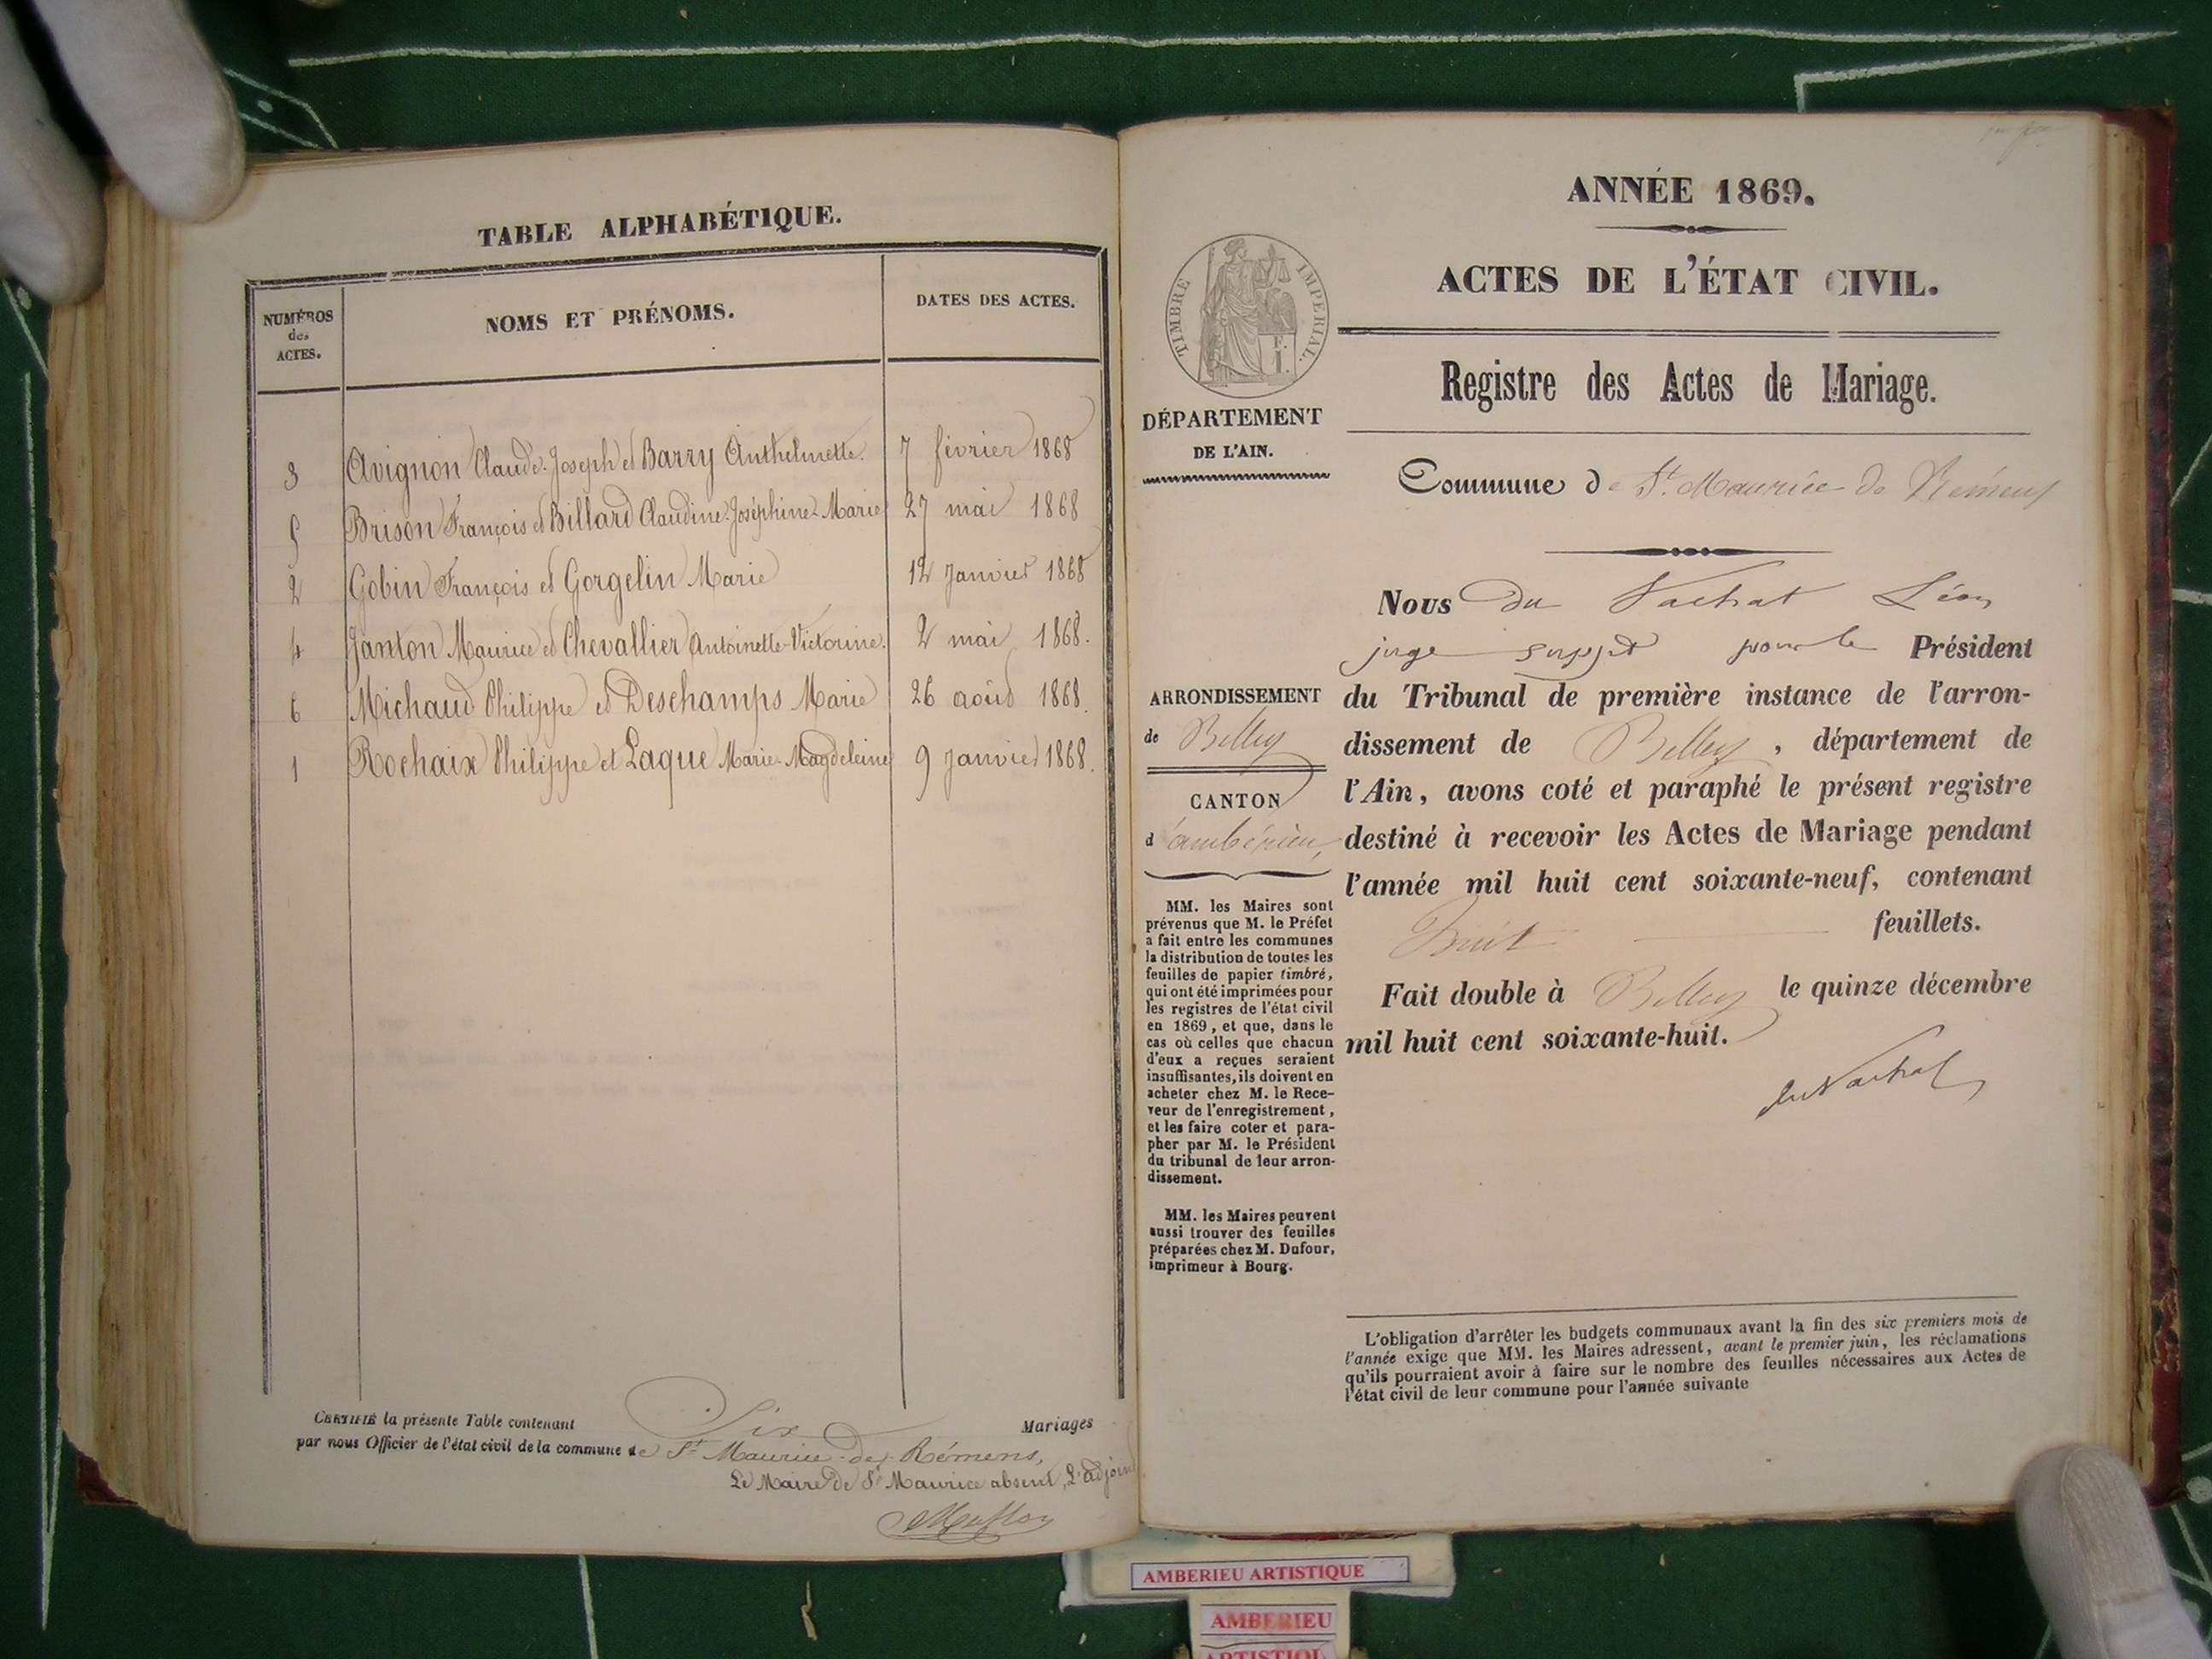 TABLE ALPHABÉTIQUE.
NUMÉROS
des
ACTES.
NOMS ET PRÉNOMS.
DATES DES ACTES.
3 Avignon Claude-Joseph et Barry Anthelmette. 7 février 1868
5 Brison François et Billard Claudine-Joséphine-Marie 27 mai 1868
2 Gobin François et Gorgelin Marie 12 Janvier 1868
4 Janton Maurice et Chevallier Antoinette-Victorine. 2 mai 1868.
6 Michaud Philippe et Deschamps Marie 26 août 1868.
1 Rochaix Philippe et Laque Marie-Magdeleine 9 Janvier 1868.
CERTIFIÉ la présente Table contenant Six Mariages
par nous Officier de l'état civil de la commune de St Maurice-de-Rémens,
Le Maire de St Maurice absent, L'adjoint
ANNÉE 1869.
ACTES DE L'ÉTAT CIVIL.
TIMBRE IMPERIAL.
Registre des Actes de Mariage.
DÉPARTEMENT
DE L'AIN.
Commune de St. Maurice de Rémens
Nous du Vachat Léon
juge suppt pour le Président
du Tribunal de première instance de l'arron-
dissement de Belley, département de
l'Ain, avons coté et paraphé le présent registre
destiné à recevoir les Actes de Mariage pendant
l'année mil huit cent soixante-neuf, contenant
huit feuillets.
Fait double à Belley le quinze décembre
mil huit cent soixante-huit.
du Vachat
ARRONDISSEMENT
de Belley
CANTON
d'ambérieu,
MM. les Maires sont
prévenus que M. le Préfet
a fait entre les communes
la distribution de toutes les
feuilles de papier timbré,
qui ont été imprimées pour
les registres de l'état civil
en 1869, et que, dans le
cas où celles que chacun
d'eux a reçues seraient
insuffisantes, ils doivent en
acheter chez M. le Rece-
veur de l'enregistrement,
et les faire coter et para-
pher par M. le Président
du tribunal de leur arron-
dissement.
MM. les Maires peuvent
aussi trouver des feuilles
préparées chez M. Dufour,
imprimeur à Bourg.
L'obligation d'arrêter les budgets communaux avant la fin des six premiers mois de
l'année exige que MM. les Maires adressent, avant le premier juin, les réclamations
qu'ils pourraient avoir à faire sur le nombre des feuilles nécessaires aux Actes de
l'état civil de leur commune pour l'année suivante
AMBERIEU ARTISTIQUE
AMBERIEU
ARTISTIQU